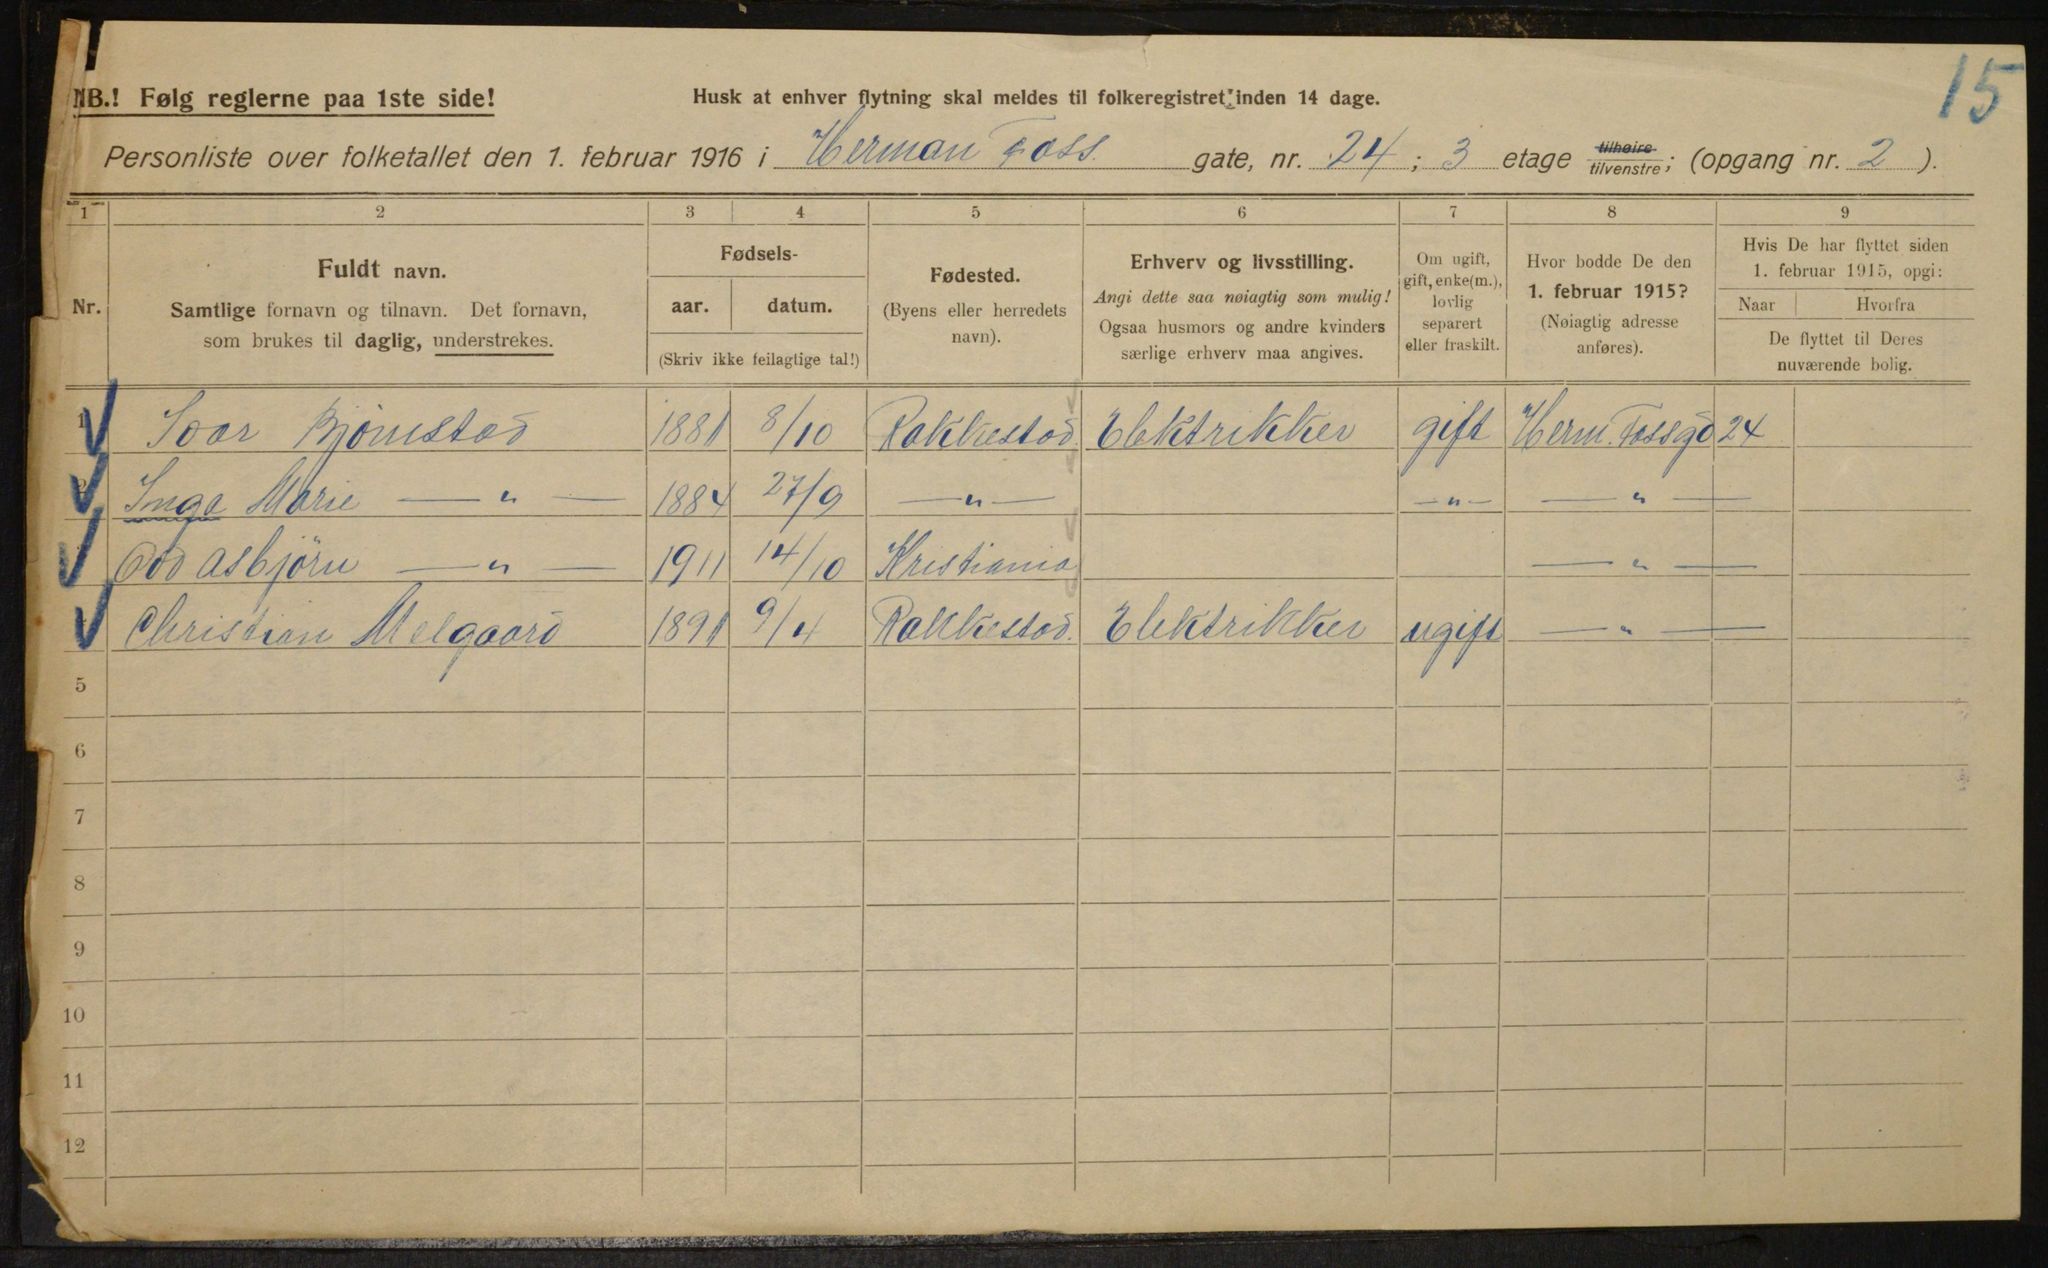 15
NB.! Følg reglerne paa 1ste side! Husk at enhver flytning skal meldes til folkeregistret inden 14 dage.
Personliste over folketallet den 1. februar 1916 i Herman Foss gate, nr. 24; 3 etage tilhøire/tilvenstre; (opgang nr. 2).
1 2 3 4 5 6 7 8 9
Nr.
Fuldt navn.
Samtlige fornavn og tilnavn. Det fornavn,
som brukes til daglig, understrekes.
Fødsels-
aar. datum.
(Skriv ikke feilagtige tal!)
Fødested.
(Byens eller herredets
navn).
Erhverv og livsstilling.
Angi dette saa nøiagtig som mulig!
Ogsaa husmors og andre kvinders
særlige erhverv maa angives.
Om ugift,
gift, enke(m.),
lovlig
separert
eller fraskilt.
Hvor bodde De den
1. februar 1915?
(Nøiagtig adresse
anføres).
Hvis De har flyttet siden
1. februar 1915, opgi:
Naar Hvorfra
De flyttet til Deres
nuværende bolig.
1 Ivar Bjørnstad 1881 8/10 Rakkestad. Elektrikker gift Herm. Fossgd 24
2 Inga Marie — " — 1884 27/9 — " — — " — — " —
Odd Asbjörn — " — 1911 14/10 Kristiania — " —
Christian Melgaard 1891 9/4 Rakkestad. Elektrikker ugift — " —
5
6
7
8
9
10
11
12